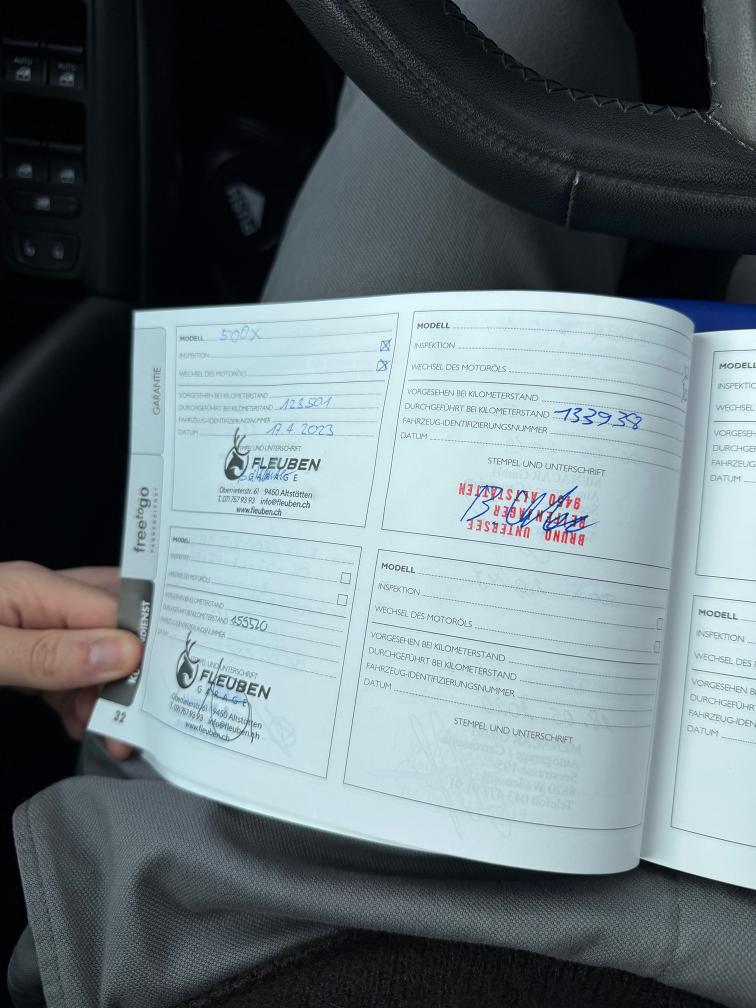 AUTO AUTO
GARANTIE
freetogo
PANNENDIENST
32
MODELL 500X
INSPEKTION
WECHSEL DES MOTORÖLS
VORGESEHEN BEI KILOMETERSTAND
DURCHGEFÜHRT BEI KILOMETERSTAND 123501
FAHRZEUG-IDENTIFIZIERUNGSNUMMER
DATUM 17.4.2023
STEMPEL UND UNTERSCHRIFT
FLEUBEN
GARAGE
Oberrieterstr. 61 9450 Altstätten
T. 071 757 93 93 info@fleuben.ch
www.fleuben.ch
MODELL
INSPEKTION
WECHSEL DES MOTORÖLS
VORGESEHEN BEI KILOMETERSTAND
DURCHGEFÜHRT BEI KILOMETERSTAND 155520
FAHRZEUG-IDENTIFIZIERUNGSNUMMER
STEMPEL UND UNTERSCHRIFT
FLEUBEN
GARAGE
Oberrieterstr. 61 9450 Altstätten
T. 071 757 93 93 info@fleuben.ch
www.fleuben.ch
MODELL
INSPEKTION
WECHSEL DES MOTORÖLS
VORGESEHEN BEI KILOMETERSTAND
DURCHGEFÜHRT BEI KILOMETERSTAND 133938
FAHRZEUG-IDENTIFIZIERUNGSNUMMER
DATUM
STEMPEL UND UNTERSCHRIFT
BRUNO UNTERSEE
REIFENLAGER
9450 ALTSTÄTTEN
MODELL
INSPEKTION
WECHSEL DES MOTORÖLS
VORGESEHEN BEI KILOMETERSTAND
DURCHGEFÜHRT BEI KILOMETERSTAND
FAHRZEUG-IDENTIFIZIERUNGSNUMMER
DATUM
STEMPEL UND UNTERSCHRIFT
MODELL
INSPEKTIO
WECHSEL
VORGESEH
DURCHGEF
FAHRZEUG-
DATUM
MODELL
INSPEKTION
WECHSEL DES
VORGESEHEN B
DURCHGEFÜHR
FAHRZEUG-IDEN
DATUM